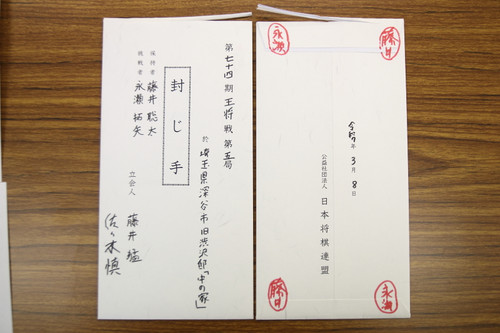 第七十四期王将戦第五局
於 埼玉県深谷市旧渋沢邸「中の家」
封じ手
保持者 藤井聡太
挑戦者 永瀬拓矢
立会人 藤井猛
佐々木慎
永瀬
藤井
令和 年 3月8日
公益社団法人 日本将棋連盟
藤井
永瀬